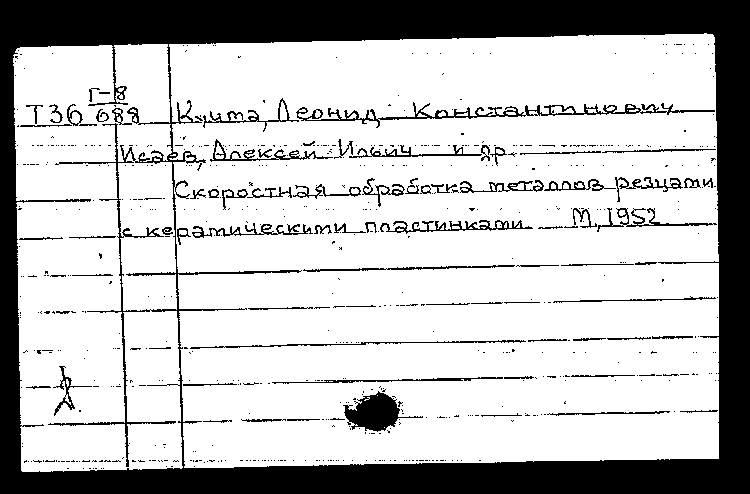 Г-8
Т36 688 Кушта, Леонид Константинович
Исаев, Алексей Ильич и др
Скоростная обработка металлов резцами
с керамическими пластинками М, 1952